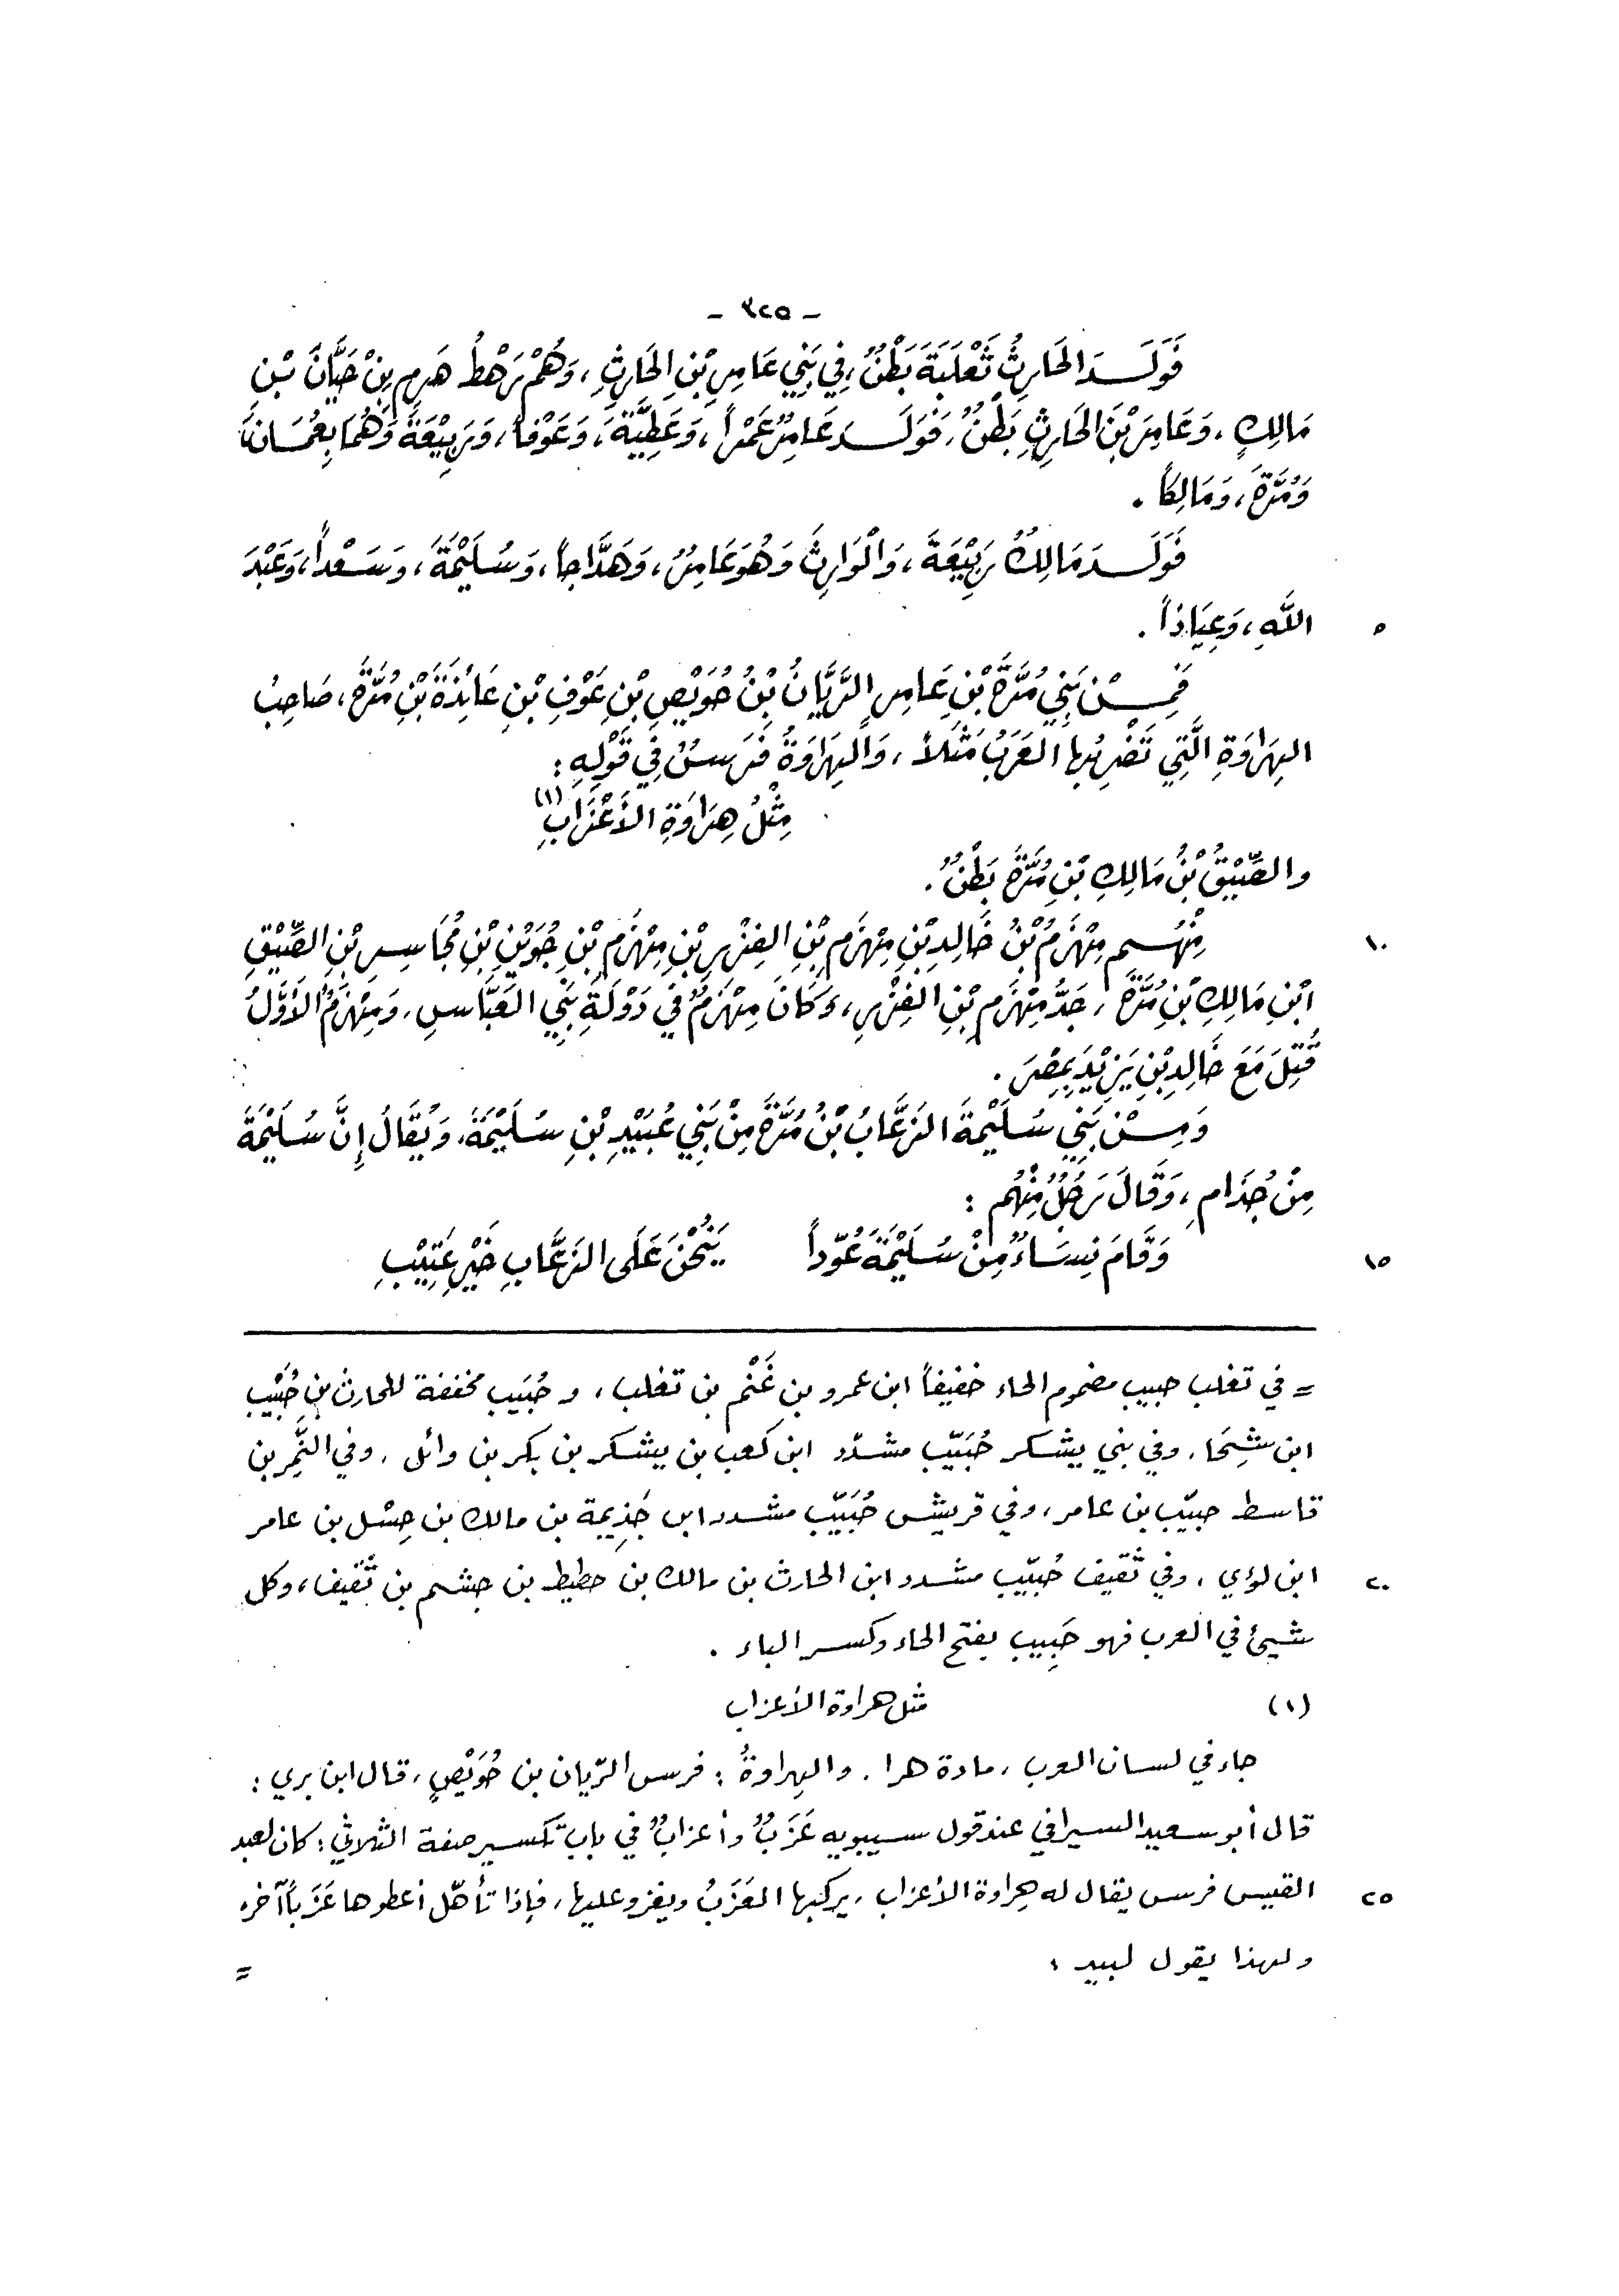 - ٣٢٥ -
فَوَلَدَ الحَارِثُ ثَعْلَبَةَ بَطْنٌ، فِي بَنِي عَامِرِ بْنِ الحَارِثِ، وَهُمْ رَهْطُ هَرِمِ بْنِ حَيَّانَ بْنِ
مَالِكٍ، وَعَامِرَ بْنَ الحَارِثِ بَطْنٌ، فَوَلَدَ عَامِرٌ عَمْراً، وَعَطِيَّةَ، وَعَوْفاً، وَرَبِيْعَةَ وَهُمَا بِعُمَانَ،
وَمُرَّةَ، وَمَالِكاً.
فَوَلَدَ مَالِكٌ رَبِيْعَةَ، وَالْوَارِثَ وَهُوَ عَامِرٌ، وَهَدَّاجاً، وَسُلَيْمَةَ، وَسَعْداً، وَعَبْدَ
٥ اللَّهِ، وَعِيَاذاً.
فَمِنْ بَنِي مُرَّةَ بْنِ عَامِرٍ الرَّيَّانُ بْنُ حُوَيْصِ بْنِ عَوْفِ بْنِ عَائِذَةَ بْنِ مُرَّةَ، صَاحِبُ
الهِرَاوَةِ الَّتِي تَضْرِبُها العَرَبُ مَثَلاً، وَالهِرَاوَةُ فَرَسٌ فِي قَوْلِهِ:
مِثْلُ هِرَاوَةِ الأَعْزَابِ (١)
والصِّيْقُ بْنُ مَالِكِ بْنِ مُرَّةَ بَطْنٌ.
١٠ مِنْهُم مِهْزَمُ بْنُ خَالِدِ بْنِ مِهْزَمِ بْنِ الفِزْرِ بْنِ مِهْزَمِ بْنِ جُوَيْنِ بْنِ مُجَاسِرِ بْنِ الصِّيْقِ
ابْنِ مَالِكِ بْنِ مُرَّةَ، جَدُّ مِهْزَمِ بْنِ الفِزْرِ، وَكَانَ مِهْزَمٌ فِي دَوْلَةِ بَنِي العَبَّاسِ، وَمِهْزَمٌ الأَوَّلُ
قُتِلَ مَعَ خَالِدِ بْنِ يَزِيْدَ بِمِصْرَ.
وَمِنْ بَنِي سُلَيْمَةَ الزَعَّابُ بْنُ مُرَّةَ مِنْ بَنِي عُبَيْدِ بْنِ سُلَيْمَةَ، وَيُقَالُ إِنَّ سُلَيْمَةَ
مِنْ جُذَامٍ، وَقَالَ رَجُلٌ مِنْهُم:
١٥ وَقَامَ نِسَاءٌ مِنْ سُلَيْمَةَ عُوّداً يَنُحْنَ عَلَى الزَعَّابِ خَيْرِ عَتِيْبِ
= في تغلب حبيب مضموم الحاء خفيفاً ابن عمرو بن غَنْم بن تغلب، و حُبَيب مخففة للحارث بن حُبَيْب
ابن شِحَا، وفي بني يشكر حُبَيّب مشدّد ابن كعب بن يشكر بن بكر بن وائل، وفي النَّمِر بن
قاسط حبيّب بن عامر، وفي قريش حُبَيّب مشدد ابن جَذِيمة بن مالك بن حِسْل بن عامر
٢٠ ابن لؤي، وفي ثقيف حُبيّب مشدد ابن الحارث بن مالك بن حطيط بن جشم بن ثقيف، وكل
شيئ في العرب فهو حَبِيب بفتح الحاء وكسر الباء.
(١) مثل هراوة الأعزاب
جاء في لسان العرب، مادة هرا. والهِراوةُ: فرس الرّيان بن حُوَيْصٍ، قال ابن بري:
قال أبو سعيد السيرافي عند قول سيبويه عَزَبٌ وأعزابٌ في باب تكسير صفة الثلاثي: كان لعبد
٢٥ القيس فرس يقال له هِراوة الأعزاب، يركبها العَزَبُ ويغزو عليها، فإذا تأهّل أعطوها عَزَباً آخر
ولهذا يقول لبيد: =